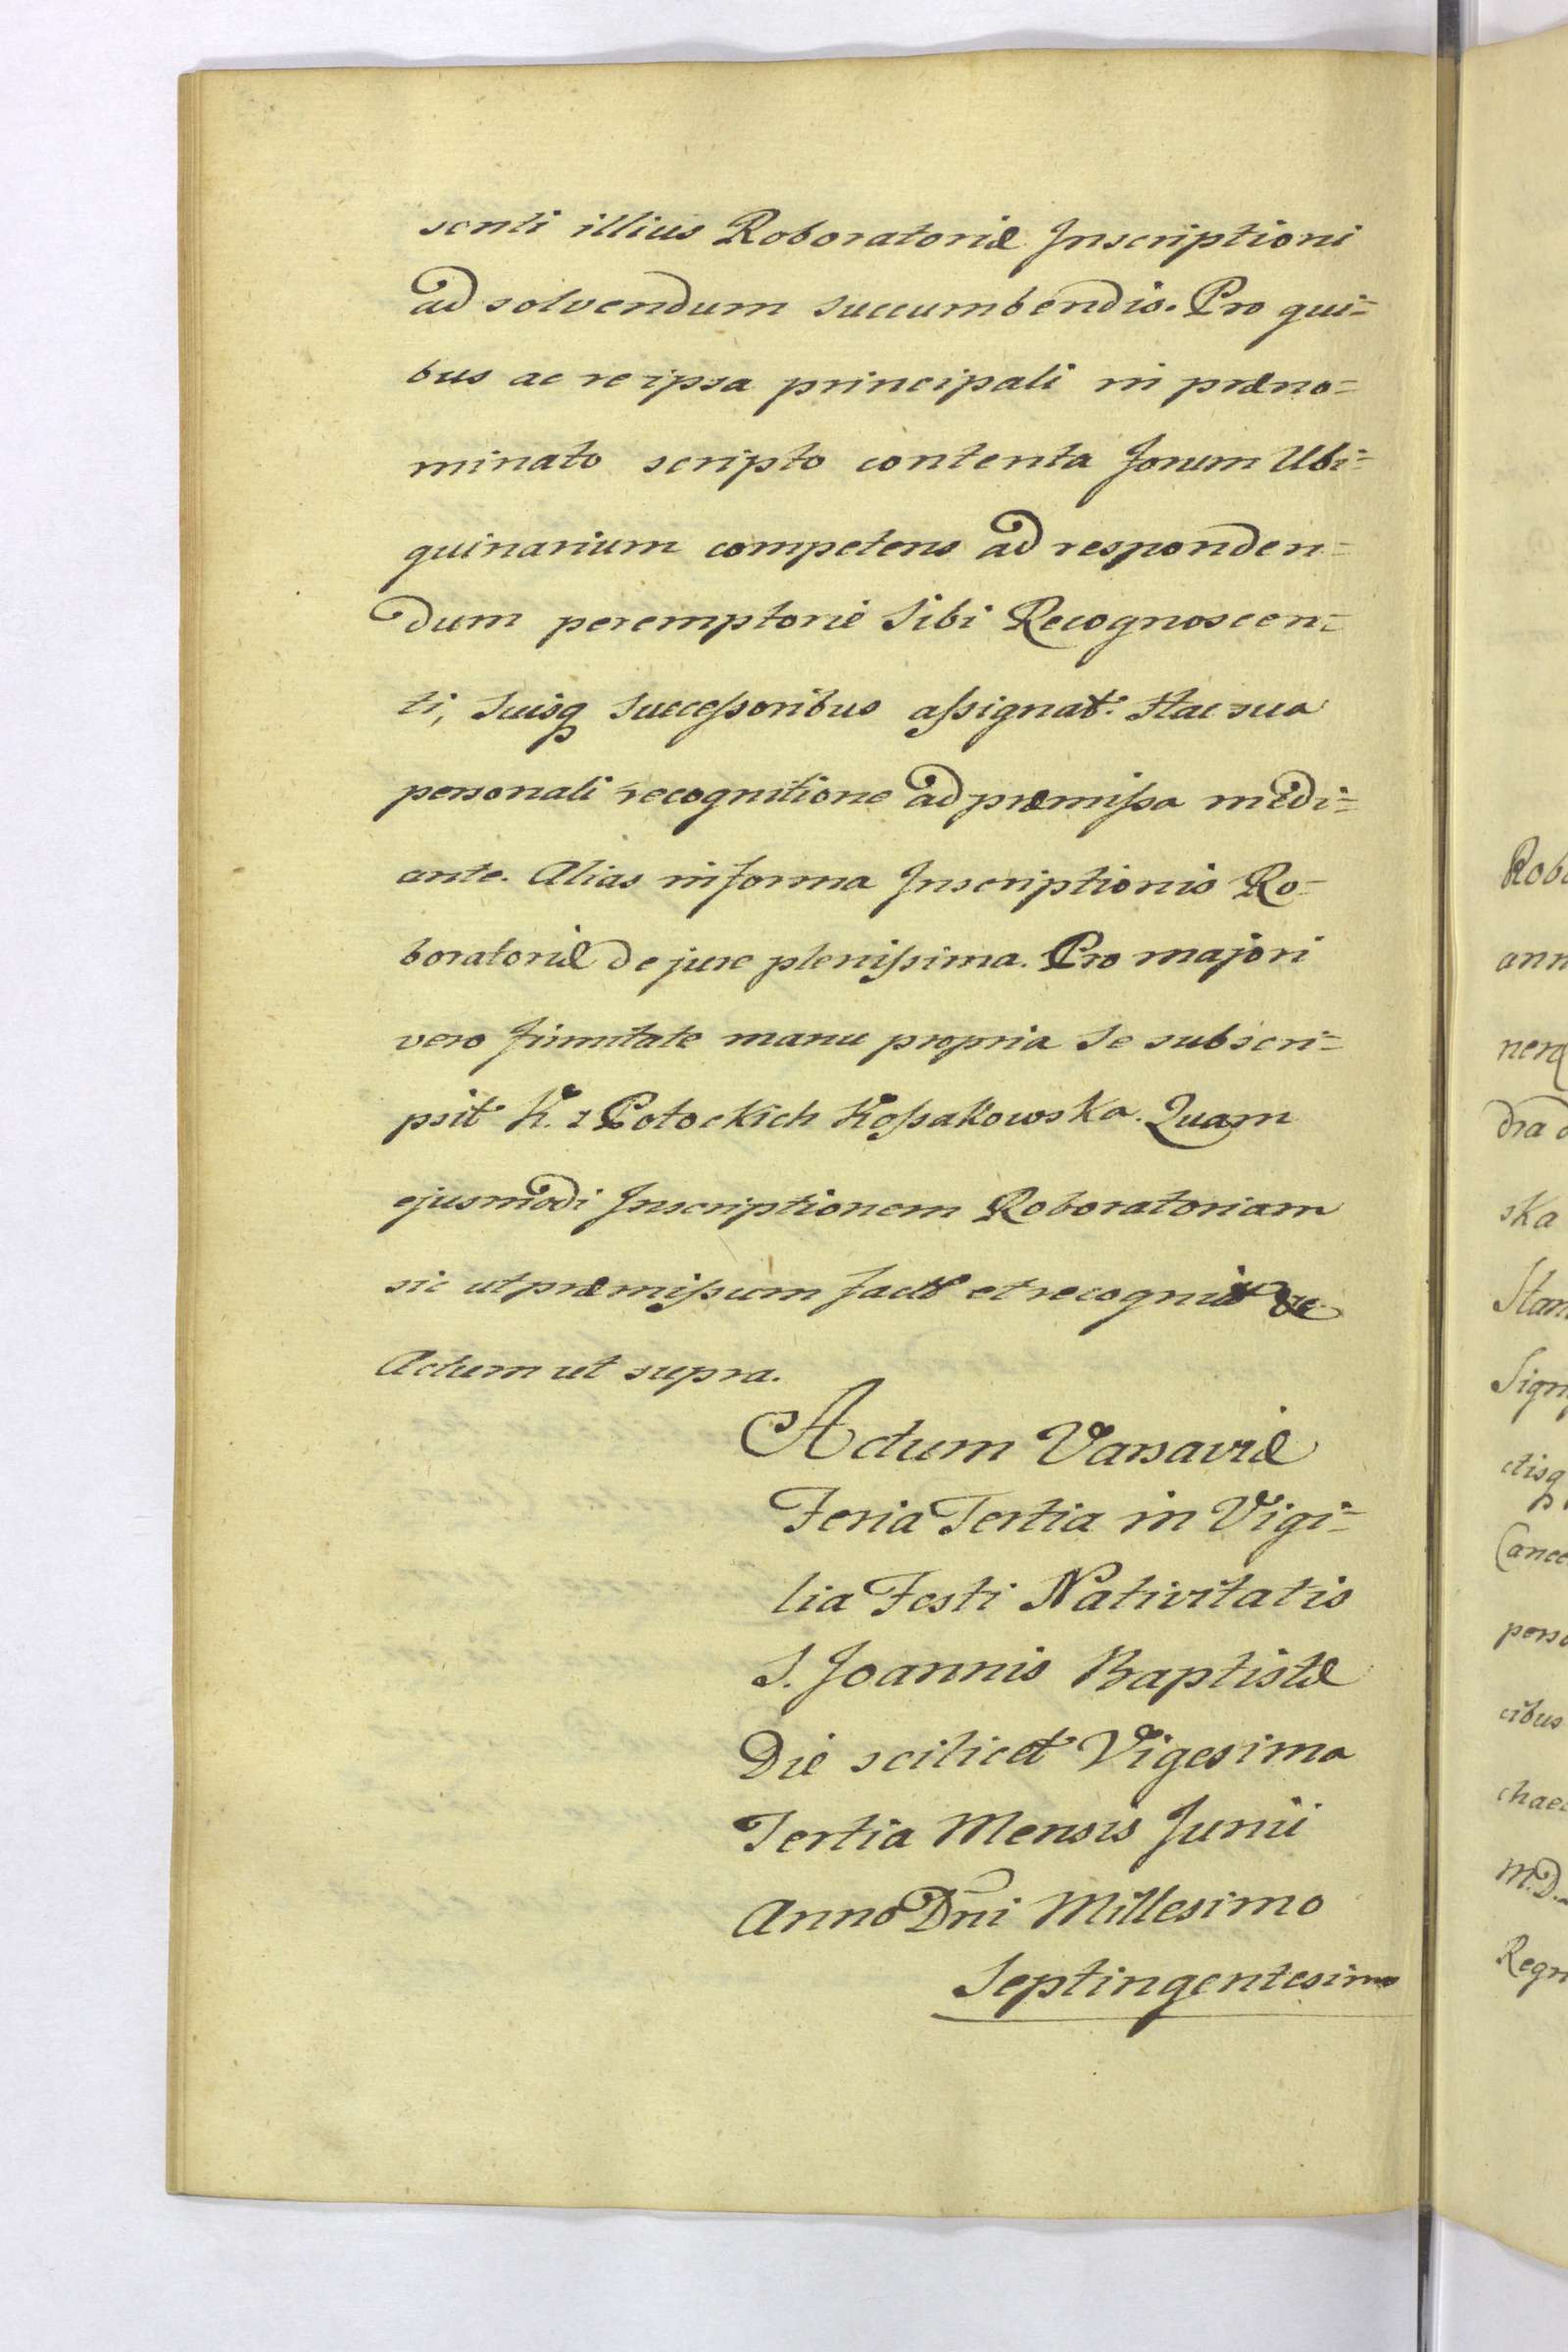 senti illius Roboratoriæ Inscriptioni
ad solvendum succumbendis. Pro qui=
bus ac re ipsa principali in præno=
minato scripto contenta forum Ubi=
quinarium competens ad responden=
dum peremptorie Sibi Recognoscen=
ti, Suisq Successoribus assignat. Hac sua
personali recognitione ad præmissa medi=
ante. Alias in forma Inscriptionis Ro=
boratoriæ de jure plenissima. Pro majori
vero firmitate manu propria se subscri=
psit K. z Potockich Kossakowska. Quam
ejusmodi Inscriptionem Roboratoriam
sic ut præmissum facit et recognovit &c
Actum ut supra.
Actum Varsaviæ
Feria Tertia in Vigi=
lia Festi Nativitatis
S. Joannis Baptistæ
Die scilicet Vigesima
Tertia Mensis Junii
Anno Dni Millesimo
Septingentesimo
Robo
ann
nerq
dra
ska
Stan
Sign
ctisq
Cance
perso
cibus
chae
M.D.
Regn